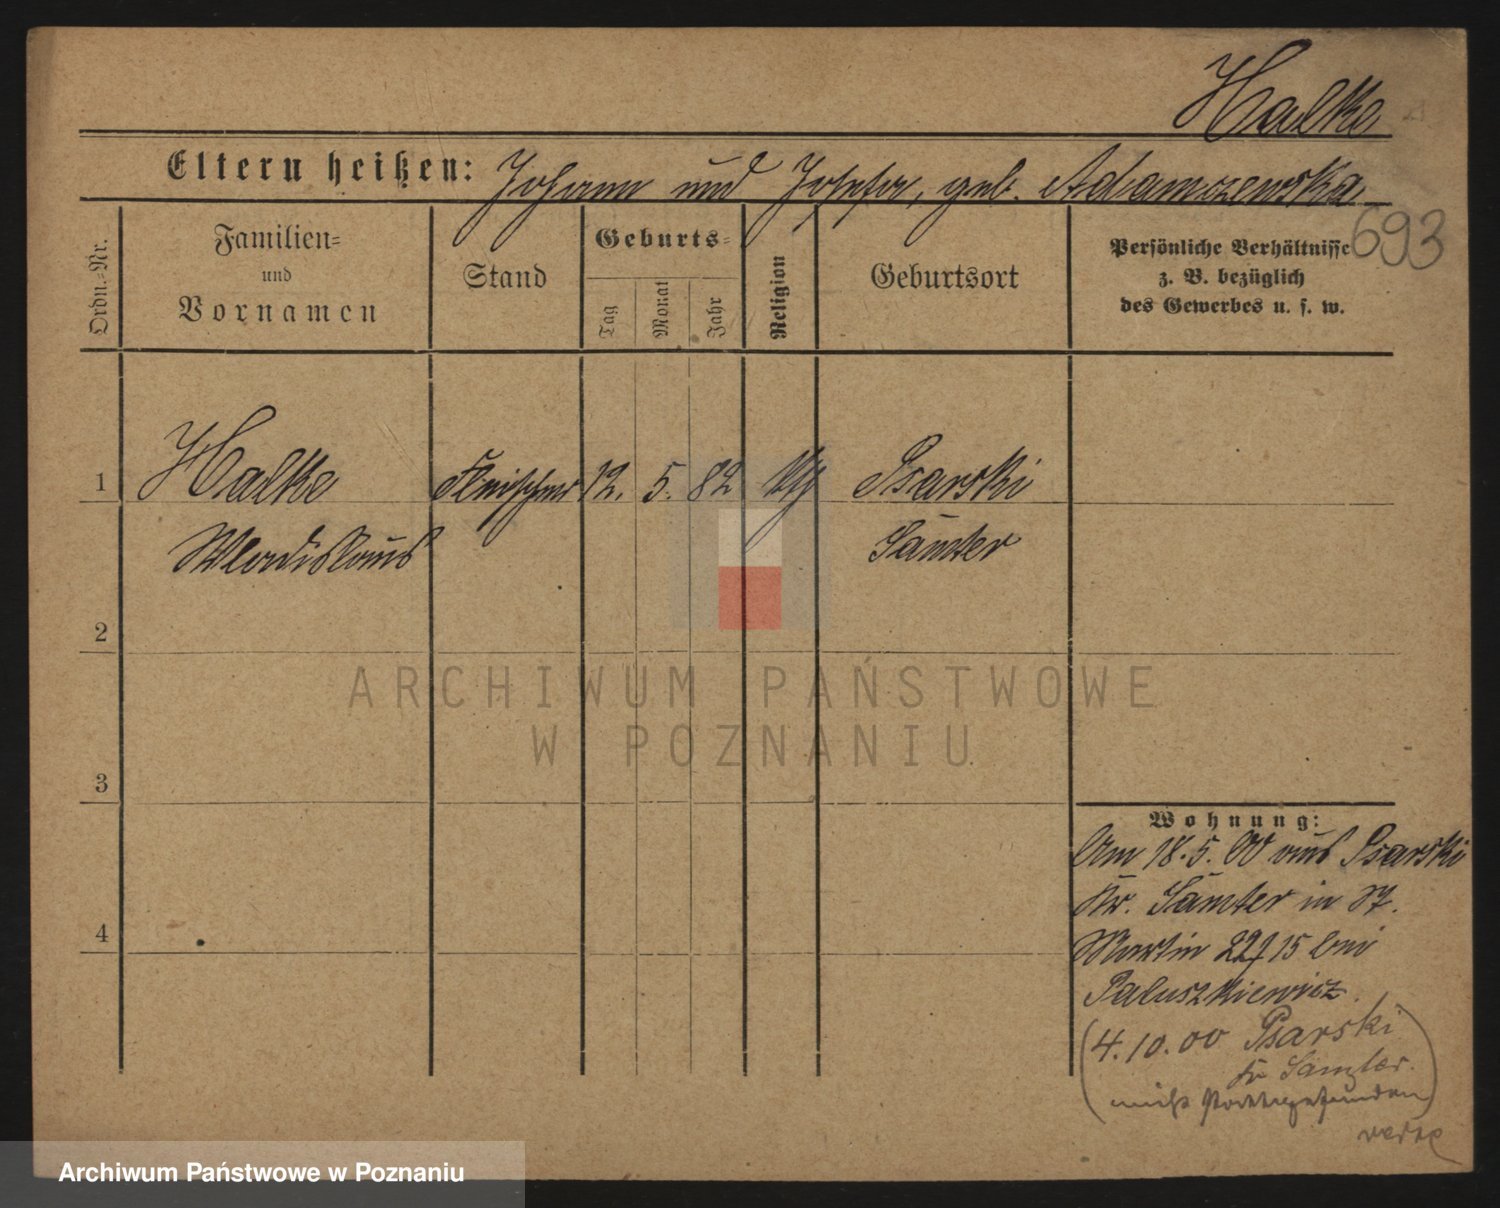 Halke
Eltern heißen: Johann und Josefa, geb. Adamczewska
693
Ordn.-Nr.
Familien-
und
Vornamen
Stand
Geburts-
Tag
Monat
Jahr
Religion
Geburtsort
Persönliche Verhältnisse
z. B. bezüglich
des Gewerbes u. s. w.
1
Halke
Fleischer
12.
5.
82
kth
Psarski
Wladislaus
Samter
2
ARCHIWUM PAŃSTWOWE
W POZNANIU
3
Wohnung:
Am 18.5.00 aus Psarski
Kr. Samter in St.
4
Martin 22/15 bei
Paluszkiewicz.
(4.10.00 Psarski
Kr Samter.
nicht stattgefunden)
Archiwum Państwowe w Poznaniu